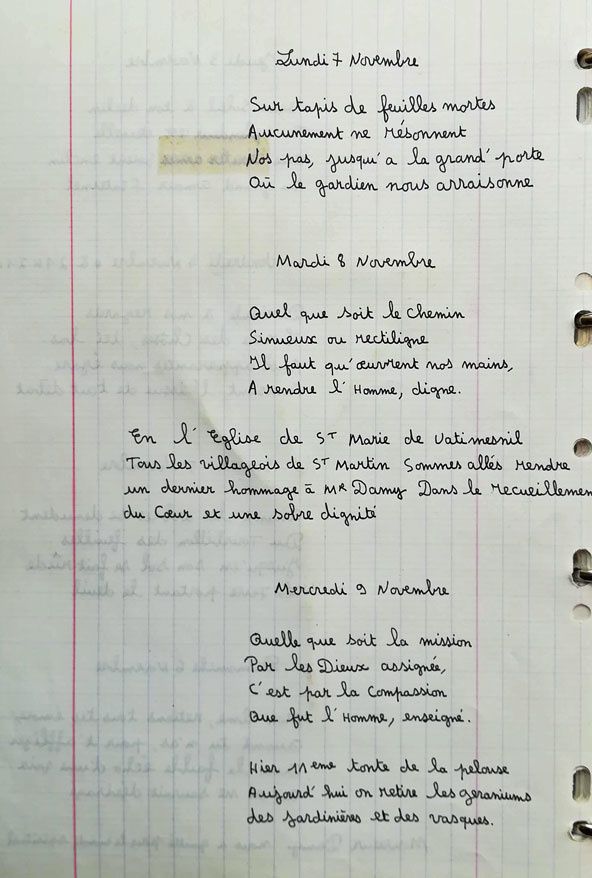 Lundi 7 Novembre
Sur tapis de feuilles mortes
Aucunement ne résonnent
Nos pas, jusqu'a la grand' porte
Où le gardien nous arraisonne
Mardi 8 Novembre
Quel que soit le chemin
Sinueux ou rectiligne
Il faut qu'œuvrent nos mains,
A rendre l'Homme, digne.
En l'Eglise de ST Marie de Vatimesnil
Tous les villageois de ST Martin Sommes allés rendre
un dernier hommage à MR Damy Dans le recueillemen
du Cœur et une sobre dignité
Mercredi 9 Novembre
Quelle que soit la mission
Par les Dieux assignée,
C'est par la Compassion
Que fut l'Homme, enseigné.
Hier 11eme tonte de la pelouse
Aujourd'hui on retire les geraniums
des jardinières et des vasques.